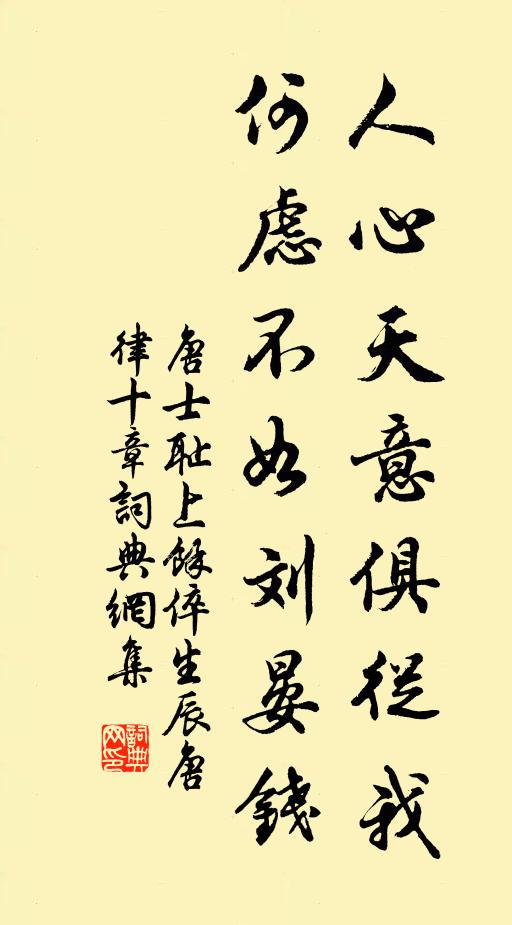 人心天意俱從我
何慮不如刘晏錢
唐士耻上餘倅生辰唐
律十章詞典網集
詞典網印